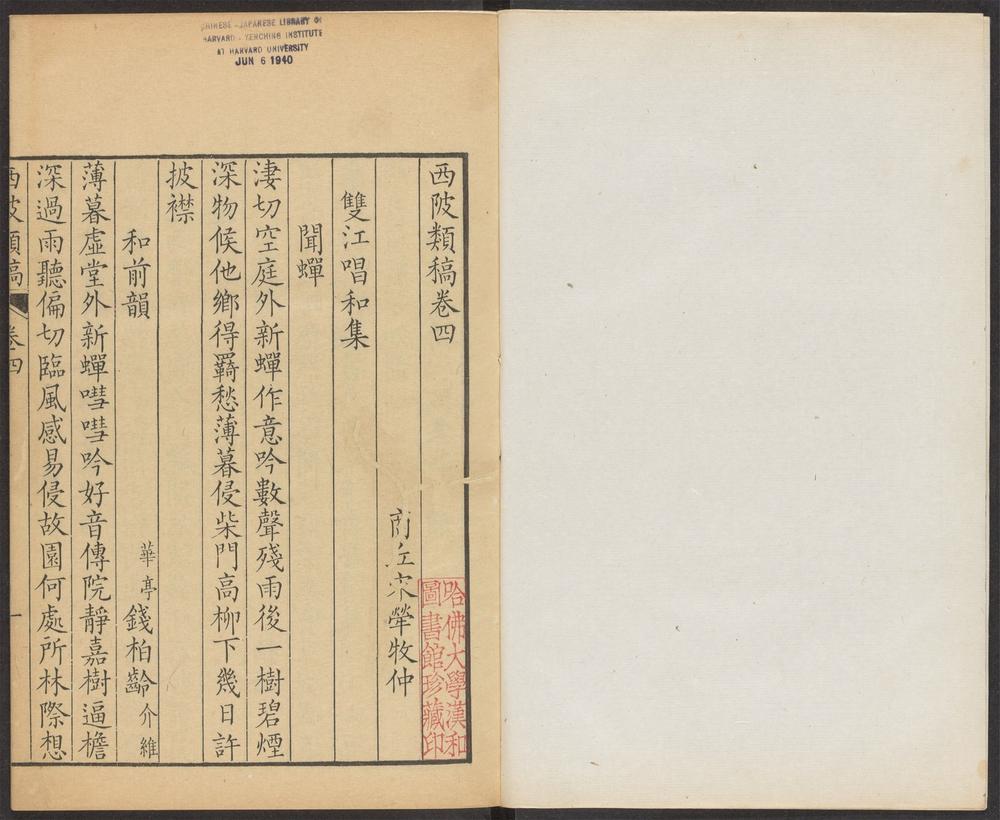 CHINESE - JAPANESE LIBRARY OF
HARVARD - YENCHING INSTITUTE
AT HARVARD UNIVERSITY
JUN 6 1940
西陂類稿卷四
商丘宋犖牧仲
哈佛大學漢和
圖書館珍藏印
雙江唱和集
聞蟬
淒切空庭外新蟬作意吟數聲殘雨後一樹碧煙
深物候他鄉得羇愁薄暮侵柴門高柳下幾日許
披襟
和前韻
華亭錢柏齡介維
薄暮虛堂外新蟬嘒嘒吟好音傳院靜嘉樹逼檐
深過雨聽偏切臨風感易侵故園何處所林際想
西陂類稿 卷四 一